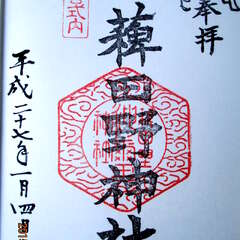 奉拝
薭田野神社
式内
平成二十七年一月四